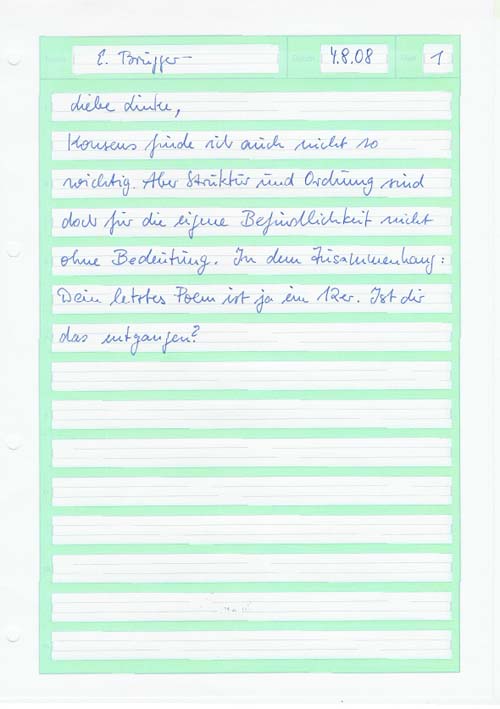 E. Brügger
4.8.08
1
Liebe Linke,
Konsens finde ich auch nicht so
wichtig. Aber Struktur und Ordnung sind
doch für die eigene Befindlichkeit nicht
ohne Bedeutung. In dem Zusammenhang:
Dein letztes Poem ist ja ein 12er. Ist dir
das entgangen?